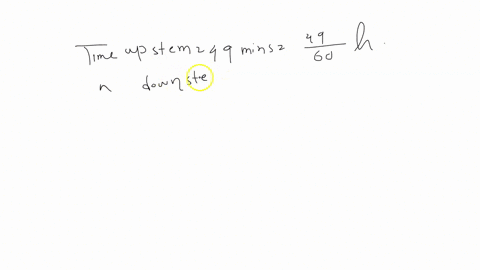 Time upstem = 49 mins = 49/60 h.
n downste